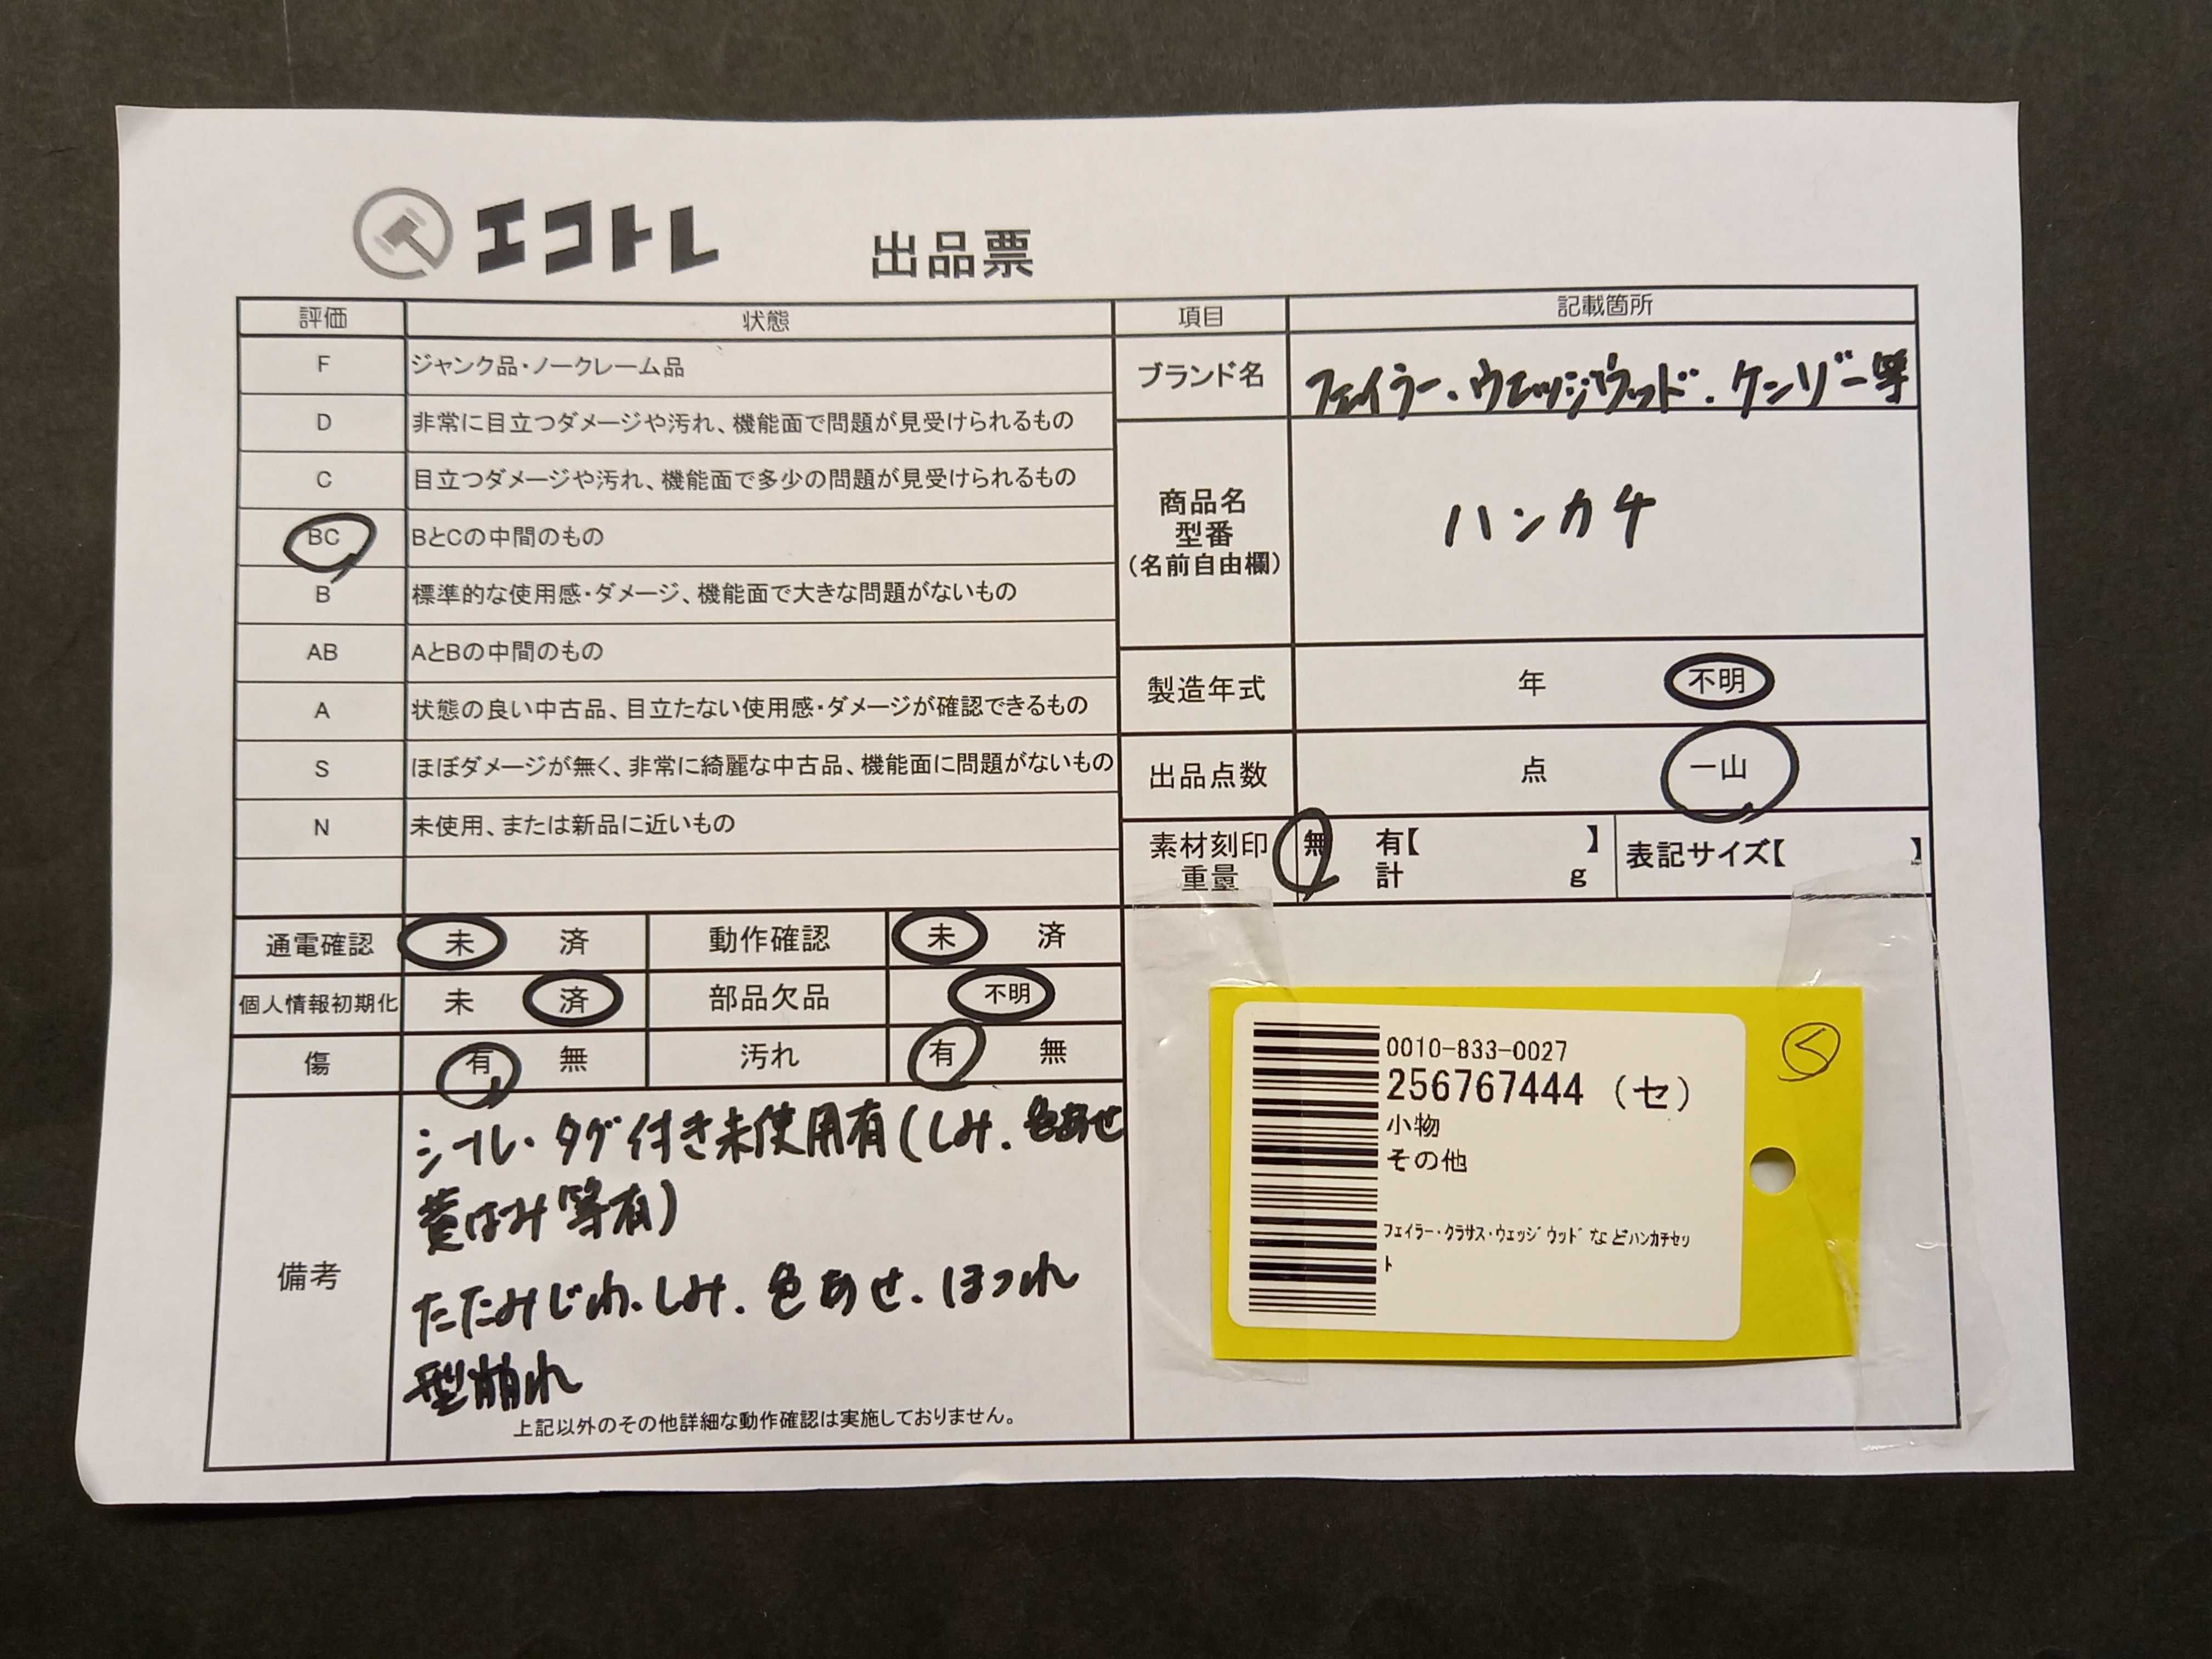 エコトレ 出品票
評価 状態
F ジャンク品・ノークレーム品
D 非常に目立つダメージや汚れ、機能面で問題が見受けられるもの
C 目立つダメージや汚れ、機能面で多少の問題が見受けられるもの
BC BとCの中間のもの
B 標準的な使用感・ダメージ、機能面で大きな問題がないもの
AB AとBの中間のもの
A 状態の良い中古品、目立たない使用感・ダメージが確認できるもの
S ほぼダメージが無く、非常に綺麗な中古品、機能面に問題がないもの
N 未使用、または新品に近いもの
項目 記載箇所
ブランド名 フェイラー・ウェッジウッド・ケンゾー等
商品名
型番
(名前自由欄)
ハンカチ
製造年式 年 不明
出品点数 点 一山
素材刻印 無 有【 】
重量 計 g
表記サイズ【 】
通電確認 未 済 動作確認 未 済
個人情報初期化 未 済 部品欠品 不明
傷 有 無 汚れ 有 無
備考
シール・タグ付き未使用有(しみ・色あせ
黄ばみ等有)
たたみじわ・しみ・色あせ・ほつれ
型崩れ
上記以外のその他詳細な動作確認は実施しておりません。
0010-833-0027
256767444 (セ)
小物
その他
フェイラー・クラサス・ウェッジウッドなどハンカチセッ
ト